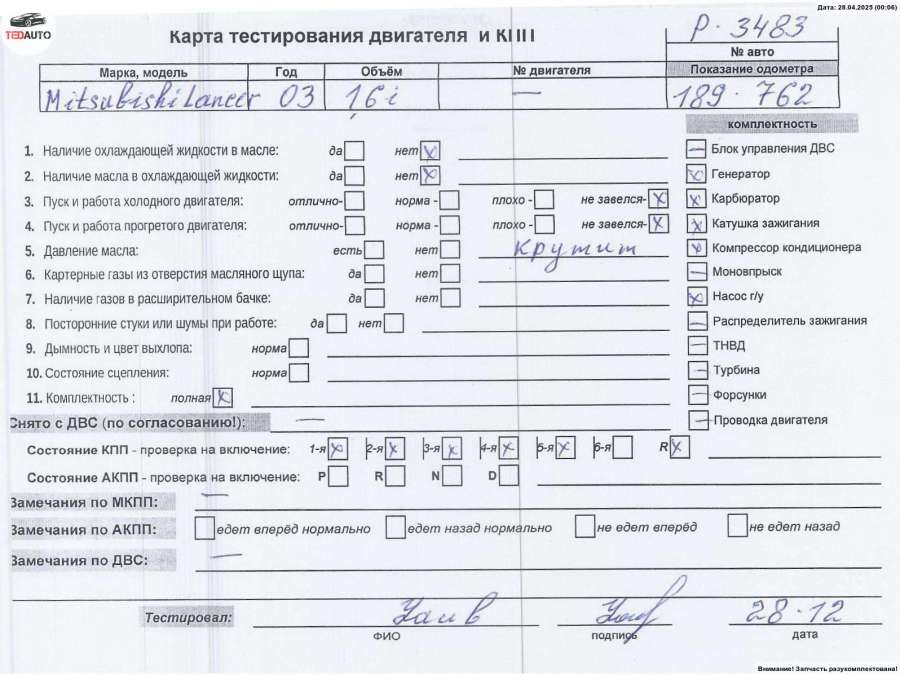 Дата: 28.04.2025 (00:06)
TEDAUTO
Карта тестирования двигателя и КПП
Р-3483
№ авто
Марка, модель Год Объём № двигателя Показание одометра
Mitsubishi Lancer 03 1,6i — 189.762
комплектность
1. Наличие охлаждающей жидкости в масле: да нет x
2. Наличие масла в охлаждающей жидкости: да нет x
3. Пуск и работа холодного двигателя: отлично- норма - плохо - не завелся- x
4. Пуск и работа прогретого двигателя: отлично- норма - плохо - не завелся- x
5. Давление масла: есть нет крутит
6. Картерные газы из отверстия масляного щупа: да нет
7. Наличие газов в расширительном бачке: да нет
8. Посторонние стуки или шумы при работе: да нет
9. Дымность и цвет выхлопа: норма
10. Состояние сцепления: норма
11. Комплектность : полная x
— Блок управления ДВС
x Генератор
x Карбюратор
x Катушка зажигания
x Компрессор кондиционера
— Моновпрыск
x Насос г/у
— Распределитель зажигания
— ТНВД
— Турбина
— Форсунки
— Проводка двигателя
Снято с ДВС (по согласованию!): —
Состояние КПП - проверка на включение: 1-я x 2-я x 3-я x 4-я x 5-я x 6-я R x
Состояние АКПП - проверка на включение: P R N D
Замечания по МКПП: —
Замечания по АКПП: едет вперёд нормально едет назад нормально не едет вперёд не едет назад
Замечания по ДВС: —
Тестировал: 28-12
ФИО подпись дата
Внимание! Запчасть разукомплектована!